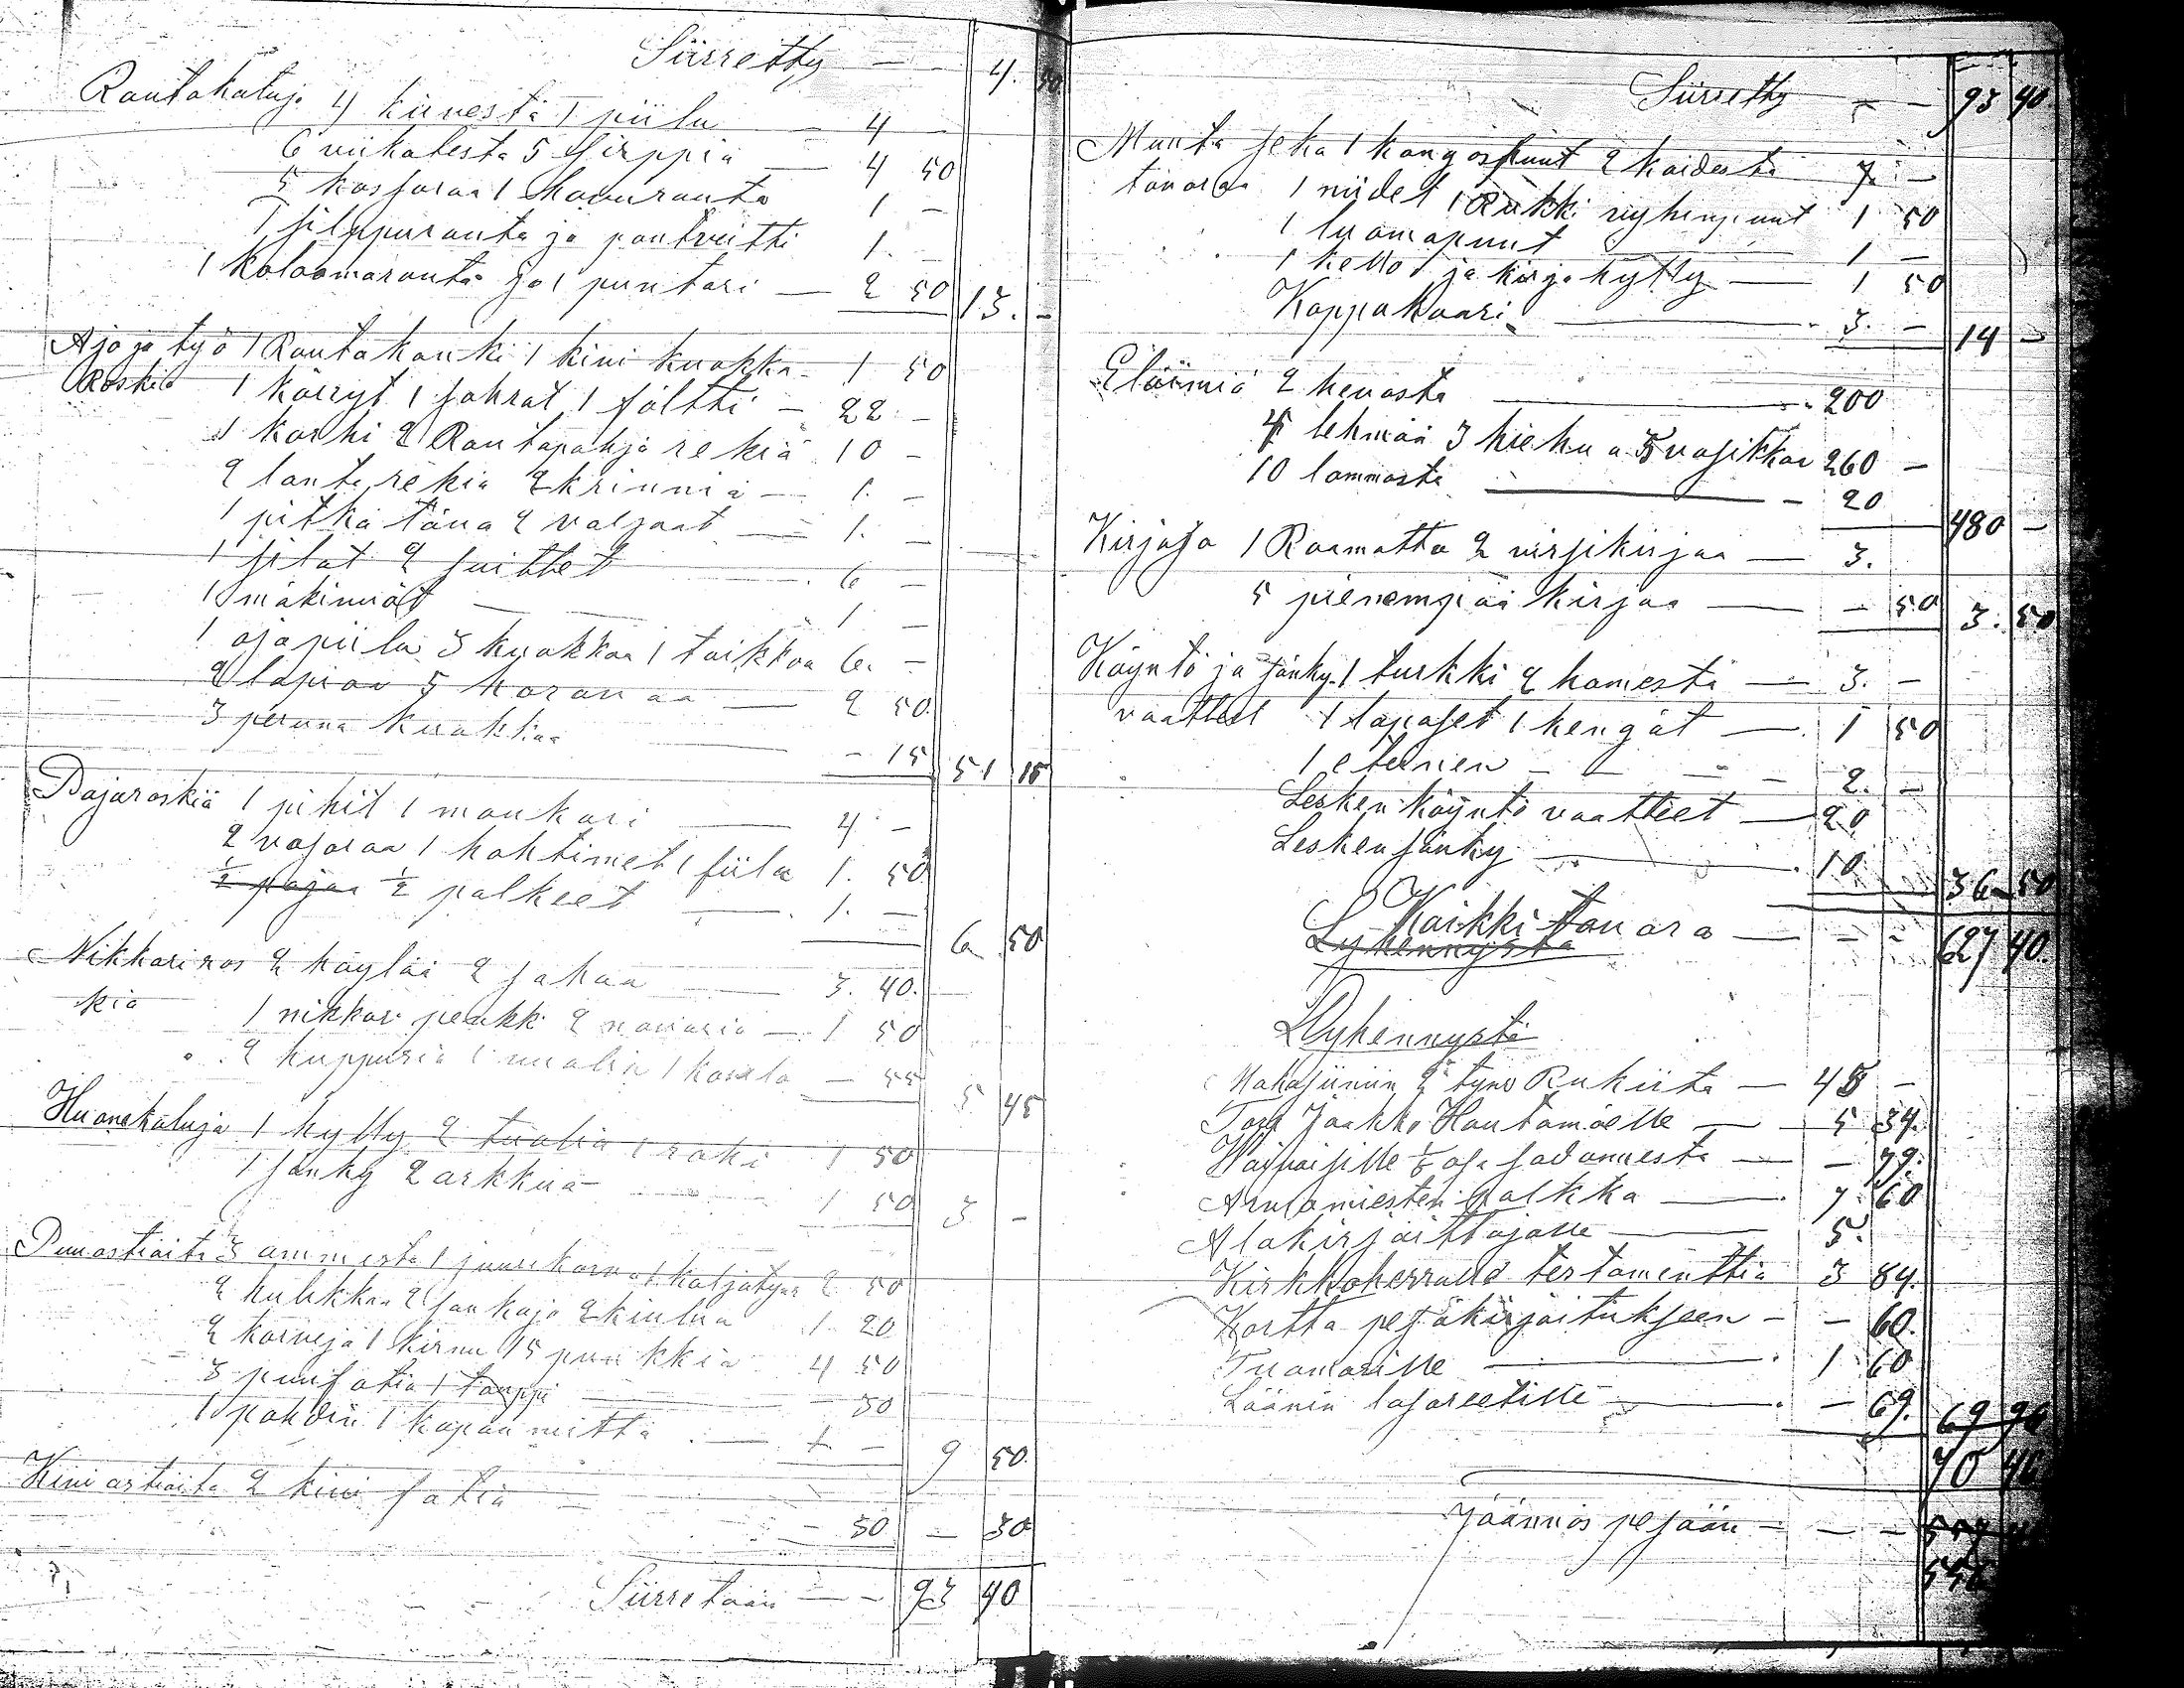 Siirretty — — 4. 50
Rautakaluja 4 kirvestä 1 piilu — 4 —
6 viikatesta 5 sirppiä — 4 50
5 kassaraa 1 havurauta 1 —
1 silppurauta ja pantveitti 1. —
1 Koloamarauta ja 1 puntari — 2 50 13. —
Ajo ja työ 1 Rautakanki 1 kivi kuokka — 1 50
Roskia 1 kärryt 1 sahrat 1 fältti — 22 —
1 karhi 2 Rautapohja rekiä 10 —
2 lanta rekiä 2 krinniä — 1. —
1 pitkä täna 2 valjaat — 1. —
1 silat 2 suittet 6 —
1 mäkivyöt — 1 —
1 ojapiilu 3 kuokkaa 1 taikkoa 6. —
2 lapiaa 5 haravaa — 2 50.
3 peruna kuokkaa — 15 51 15
Pajaroskia 1 pihit 1 moukari — 4 —
2 vasaraa 1 hohtimet 1 fiila 1. 50
½ pajaa ½ palkeet — 1. — 6 50
Nikkariros 2 höylää 2 sahaa — 3. 40.
kia 1 nikkari penkki 2 navaria — 1 50
2 huppuria 1 1 — 55 5 45
Huonekaluja 1 hylly 2 tuolia 1 raki 1 50
1 sänky 2 arkkua 1 50 3 —
Puuastioita 3 ammesta 1 juurikorva 1 kaljatynr 2 50
2 kuhkkaa 2 sankaja 2 kiulua 1 20
2 korveja 1 kirnu 15 punkkia 4 50
3 puusatia 1 tauppi — 30
1 pahdin 1 kapan mitta — 1 — 9 50.
Kivi astioita 2 kivi satia — 30 — 30
Siirretään — — 93 40
Siirretty — — 93 40
Muuta seka 1 kangaspuut 2 kaidesta 7. —
tavaraa 1 niidet 1 Rukki vyhinpuut 1 50
1 luomapuut 1 —
1 kello ja kirja hylly — 1 50
Kappa kaari — 3. — 14 —
Eläimiä 2 hevosta — 200
4 lehmää 3 hiehua 5 vasikkaa 260 —
10 lammasta — 20 480 —
Kirjoja 1 Raamattu 2 virsikirjaa — 3.
5 pienempää kirjaa — — 50 3. 50
Käyntö ja sänky. 1 turkki 2 hamesta — 3. —
vaatteet 1 lapaset 1 kengät — 1 50
1 etuinen — — — 2. —
Lesken käyntö vaatteet — 20
Lesken sänky — 10. 36 50
Kaikki tavara — — — 627 40.
Lyhennystä
Lyhennystä
Makasiiniin 2 tynr Rukiita — 45 —
Jaakko Hautamäelle — 5 34.
Waivaisille ⅛ osa sadannesta — — 79.
Arvlomiesten palkka — 7. 60
Alakirjoittajalle — 5.
Kirkkoherralle testamenttia 3 84.
Kartta pesäkirjoitukseen — — 60.
Tuomarille — 1 60
Läänin lasareetille — — 69. 69 96
70 46
Jäännös pesään — — —